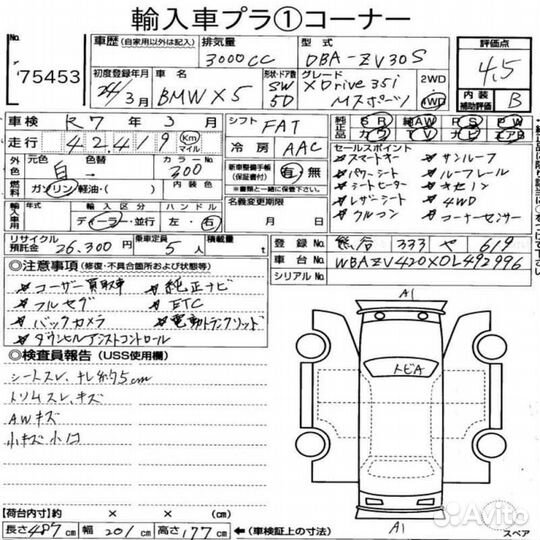 輸入車プラ①コーナー
No.
75453
車歴 (自家用以外は記入)
排気量
3000CC
型式
DBA-ZV30S
評価点
4.5
初度登録年月
24年3月
車名
BMW X5
形状・ドア数
SW
5D
グレード
XDrive 35i
Mスポーツ
2WD
4WD
内装
補助評価
B
車検 R7年3月
シフト FAT
純正品
SR
AW
PS
PW
カワ
TV
ナビ
エアB
走行 42,419 Km マイル
冷房 AAC
セールスポイント
スマートキー
サンルーフ
パワーシート
ルーフレール
シートヒーター
キセノン
レザーシート
4WD
クルコン
コーナーセンサー
外色
元色
白
色替
カラーNo.
300
新車整備手帳
(保証書付)
有・無
燃料
ガソリン・軽油・( )
内装色
名義変更期限
月 日
輸入車用
年式
輸入区分
ディーラー・並行
ハンドル
左・右
リサイクル
預託金
26,300円
乗車定員
5人
積載量
t
登録No.
熊谷 333 や 619
車台No.
WBAZV420X0L492996
シリアルNo.
◎注意事項 (修復・不具合箇所および状態等)
ユーザー買取車
純正ナビ
フルセグ
ETC
バックカメラ
電動トランクリッド
ダウンヒルアシストコントロール
◎検査員報告 (USS使用欄)
シートスレ、
トリムスレ、キズ
AWキズ
小キズ小凹
A1
トビA
A1
スペア
【荷台内寸】約 × × (cm)
長さ487cm 幅201cm 高さ177cm (車検証上の寸法)
Avito